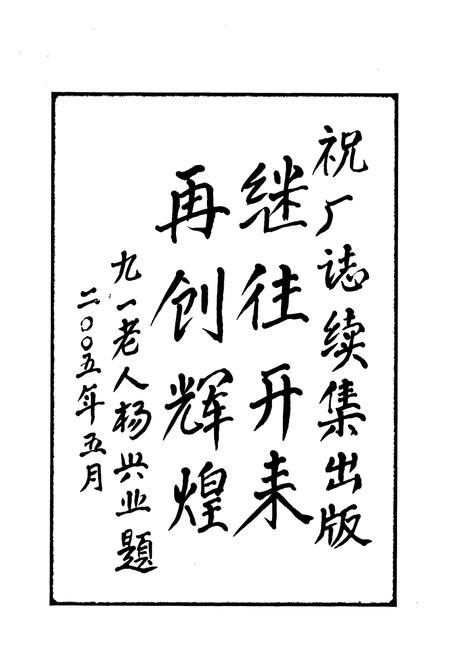 祝厂志续集出版
继往开来
再创辉煌
九一老人杨兴业题
二〇〇五年五月